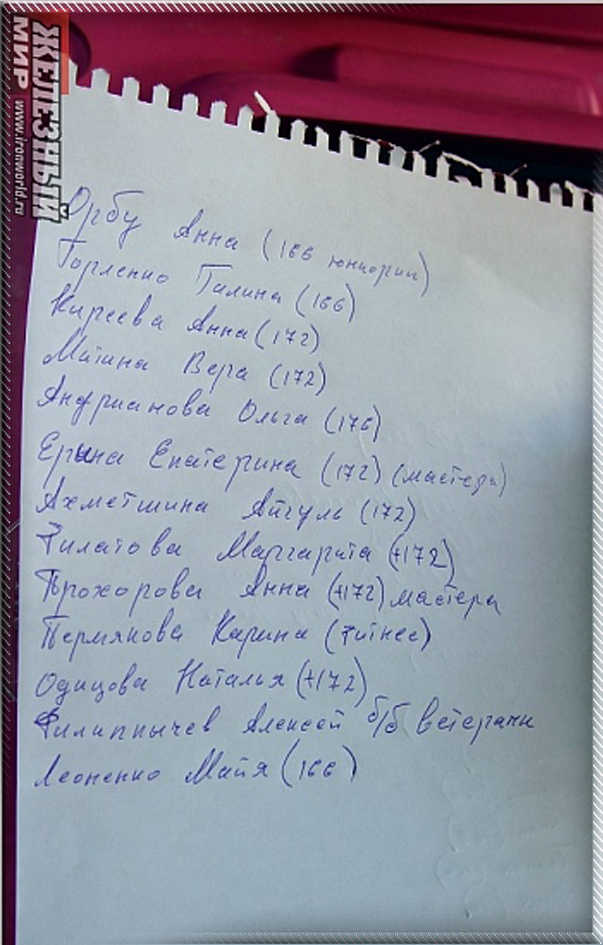 ЖЕЛЕЗНЫЙ
МИР www.ironworld.ru
Орбу Анна (166 юниорки)
Горленко Галина (166)
Киреева Анна (172)
Матина Вера (172)
Андрианова Ольга (176)
Ерына Екатерина (172) (мастера)
Ахметшина Айгуль (172)
Филатова Маргарита (+172)
Прохорова Анна (+172) мастера
Пермякова Карина (Фитнес)
Одицова Наталья (+172)
Филиппычев Алексей б/б ветераны
Леоненко Майя (166)